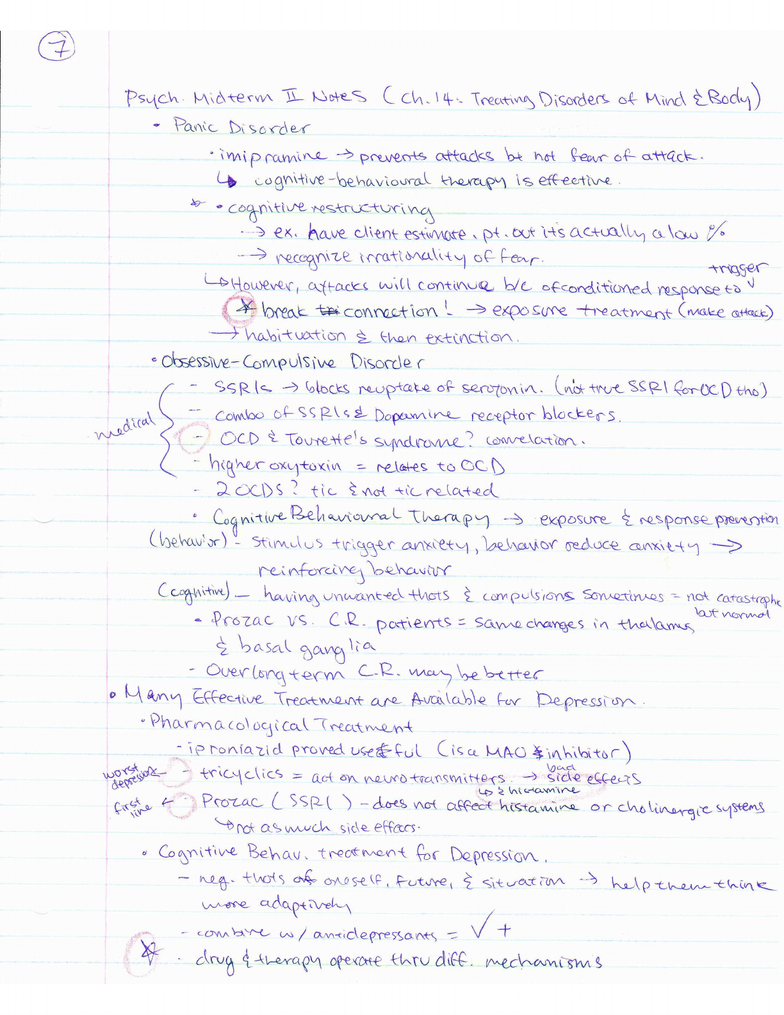 7
Psych. Midterm II Notes (Ch.14: Treating Disorders of Mind & Body)
• Panic Disorder
• imipramine → prevents attacks bt not fear of attack.
↳ cognitive-behavioural therapy is effective.
* • cognitive restructuring
→ ex. have client estimate, pt. out its actually a low %
→ recognize irrationality of fear.
trigger
↳ However, attacks will continue b/c of conditioned response to ✓
☆ break connection! → exposure treatment (make attack)
→ habituation & then extinction.
• Obsessive-Compulsive Disorder
- SSRIs → blocks reuptake of serotonin. (not true SSRI for OCD tho)
- combo of SSRIs & Dopamine receptor blockers.
medical
- OCD & Tourette's syndrome? correlation.
- higher oxytoxin = relates to OCD
- 2 OCDS? tic & not tic related
• Cognitive Behavioural Therapy → exposure & response prevention
(behavior) - stimulus trigger anxiety, behavior reduce anxiety →
reinforcing behavior
(cognitive) - having unwanted thots & compulsions sometimes = not catastrophe
but normal
• Prozac vs. C.R. patients = same changes in thalamus
& basal ganglia
- Over long term C.R. may be better
• Many Effective Treatment are Available for Depression.
• Pharmacological Treatment
- iproniazid proved useful (is a MAO inhibitor)
worst depression ← - tricyclics = act on neurotransmitters. → bad side effects
↳ & histamine
first line ← Prozac (SSRI) - does not affect histamine or cholinergic systems
↳ not as much side effects.
• Cognitive Behav. treatment for Depression.
- neg. thots of oneself, future, & situation → help them think
more adaptively
- combine w/ antidepressants = ✓+
☆ • drug & therapy operate thru diff. mechanisms